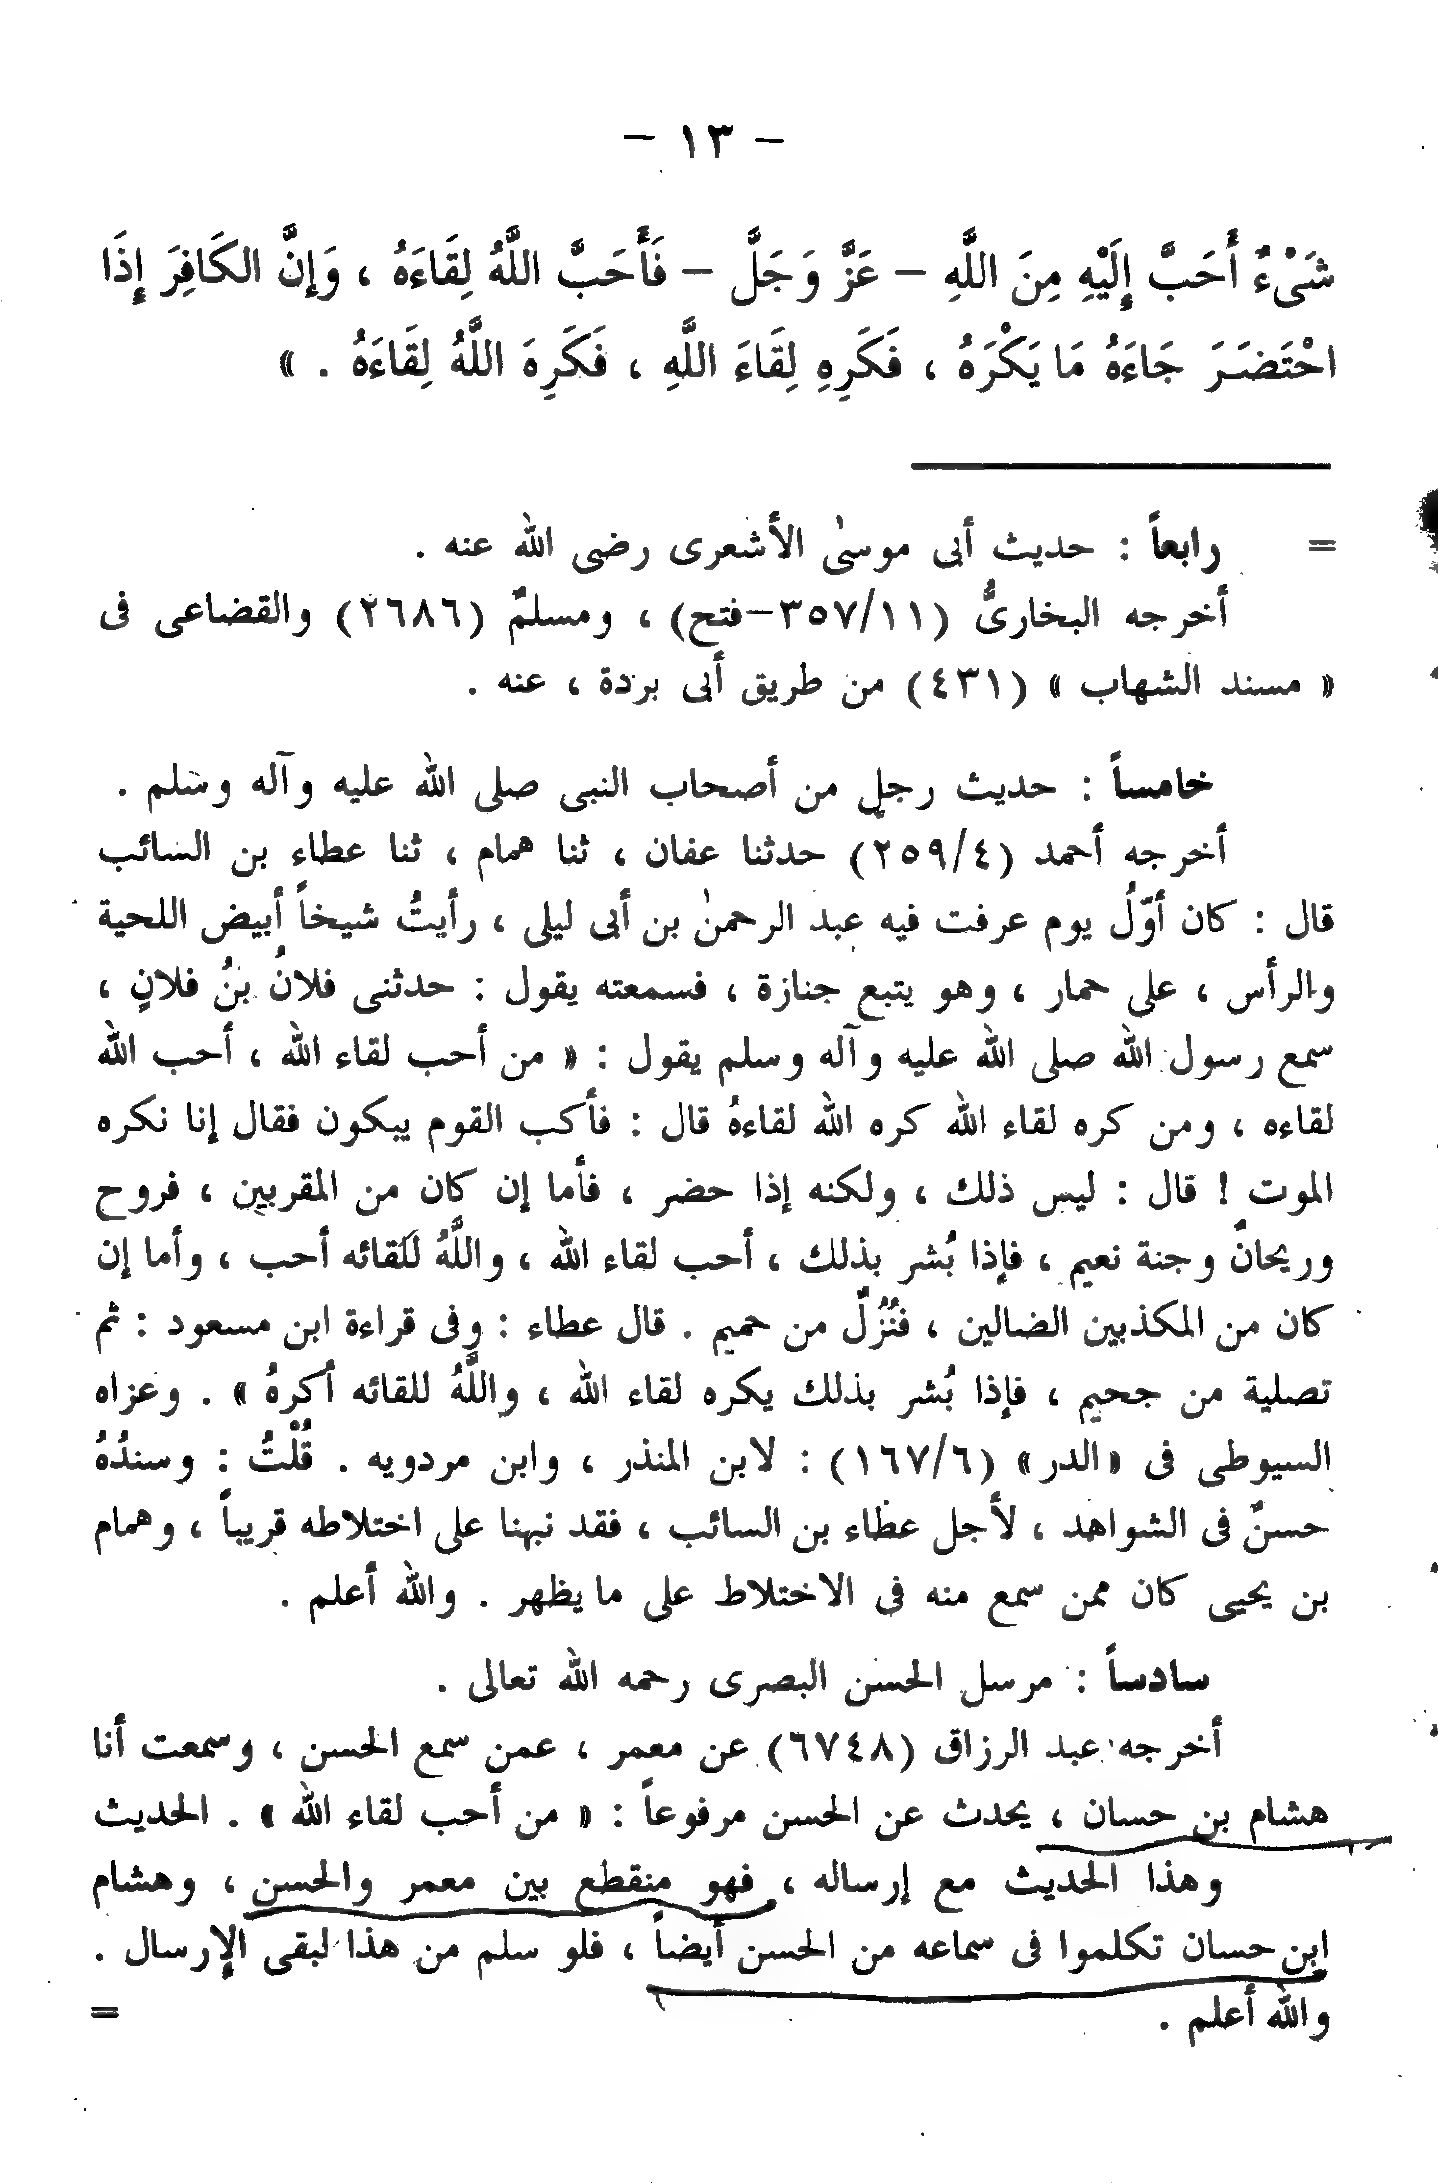 – ١٣ –
شَىْءٌ أَحَبَّ إِلَيْهِ مِنَ اللَّهِ – عَزَّ وَجَلَّ – فَأَحَبَّ اللَّهُ لِقَاءَهُ ، وَإِنَّ الكَافِرَ إِذَا
احْتَضَرَ جَاءَهُ مَا يَكْرَهُ ، فَكَرِهِ لِقَاءَ اللَّهِ ، فَكَرِهَ اللَّهُ لِقَاءَهُ . »
= رابعاً : حديث أبى موسىٰ الأشعرى رضى الله عنه .
أخرجه البخارىُّ (٣٥٧/١١–فتح) ، ومسلمٌ (٢٦٨٦) والقضاعى فى
« مسند الشهاب » (٤٣١) من طريق أبى بردة ، عنه .
خامساً : حديث رجلٍ من أصحاب النبى صلى الله عليه وآله وسلم .
أخرجه أحمد (٢٥٩/٤) حدثنا عفان ، ثنا همام ، ثنا عطاء بن السائب
قال : كان أوّلُ يوم عرفت فيه عبد الرحمنٰ بن أبى ليلى ، رأيتُ شيخاً أبيض اللحية
والرأس ، على حمار ، وهو يتبع جنازة ، فسمعته يقول : حدثنى فلانُ بنُ فلانٍ ،
سمع رسول الله صلى الله عليه وآله وسلم يقول : « من أحب لقاء الله ، أحب الله
لقاءه ، ومن كره لقاء الله كره الله لقاءهُ قال : فأكب القوم يبكون فقال إنا نكره
الموت ! قال : ليس ذلك ، ولكنه إذا حضر ، فأما إن كان من المقربين ، فروح
وريحانٌ وجنة نعيم ، فإذا بُشر بذلك ، أحب لقاء الله ، واللَّهُ لَلقائه أحب ، وأما إن
كان من المكذبين الضالين ، فنُزُلٌ من حميم . قال عطاء : وفى قراءة ابن مسعود : ثم
تصلية من جحيم ، فإذا بُشر بذلك يكره لقاء الله ، واللَّهُ للقائه أكرهُ » . وعزاه
السيوطى فى «الدر» (١٦٧/٦) : لابن المنذر ، وابن مردويه . قُلْتُ : وسندُهُ
حسنٌ فى الشواهد ، لأجل عطاء بن السائب ، فقد نبهنا على اختلاطه قريباً ، وهمام
بن يحيى كان ممن سمع منه فى الاختلاط على ما يظهر . والله أعلم .
سادساً : مرسل الحسن البصرى رحمه الله تعالى .
أخرجه عبد الرزاق (٦٧٤٨) عن معمر ، عمن سمع الحسن ، وسمعت أنا
هشام بن حسان ، يحدث عن الحسن مرفوعاً : « من أحب لقاء الله » . الحديث
وهذا الحديث مع إرساله ، فهو منقطع بين معمر والحسن ، وهشام
ابن حسان تكلموا فى سماعه من الحسن أيضاً ، فلو سلم من هذا لبقى الإرسال .
والله أعلم . =